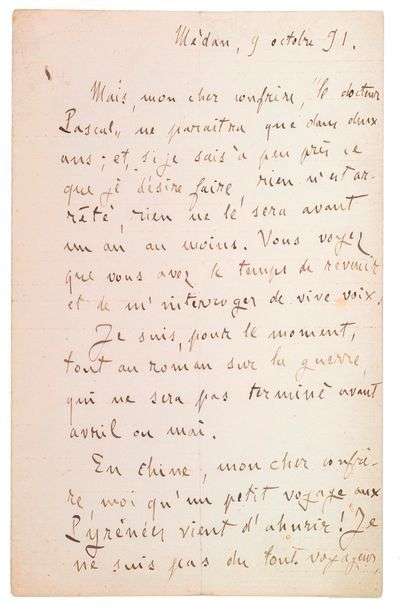 Médan, 9 octobre 91.
Mais, mon cher confrère, "le docteur
Pascal" ne paraîtra que dans deux
ans ; et, si je sais à peu près ce
que je désire faire, rien n'est ar-
rêté, rien ne le sera avant
un an au moins. Vous voyez
que vous avez le temps de revenir
et de m'interroger de vive voix.
Je suis, pour le moment,
tout au roman sur la guerre,
qui ne sera pas terminé avant
avril ou mai.
En Chine, mon cher confrè-
re, moi qu'un petit voyage aux
Pyrénées vient d'ahurir ! Je
ne suis pas du tout voyageur,